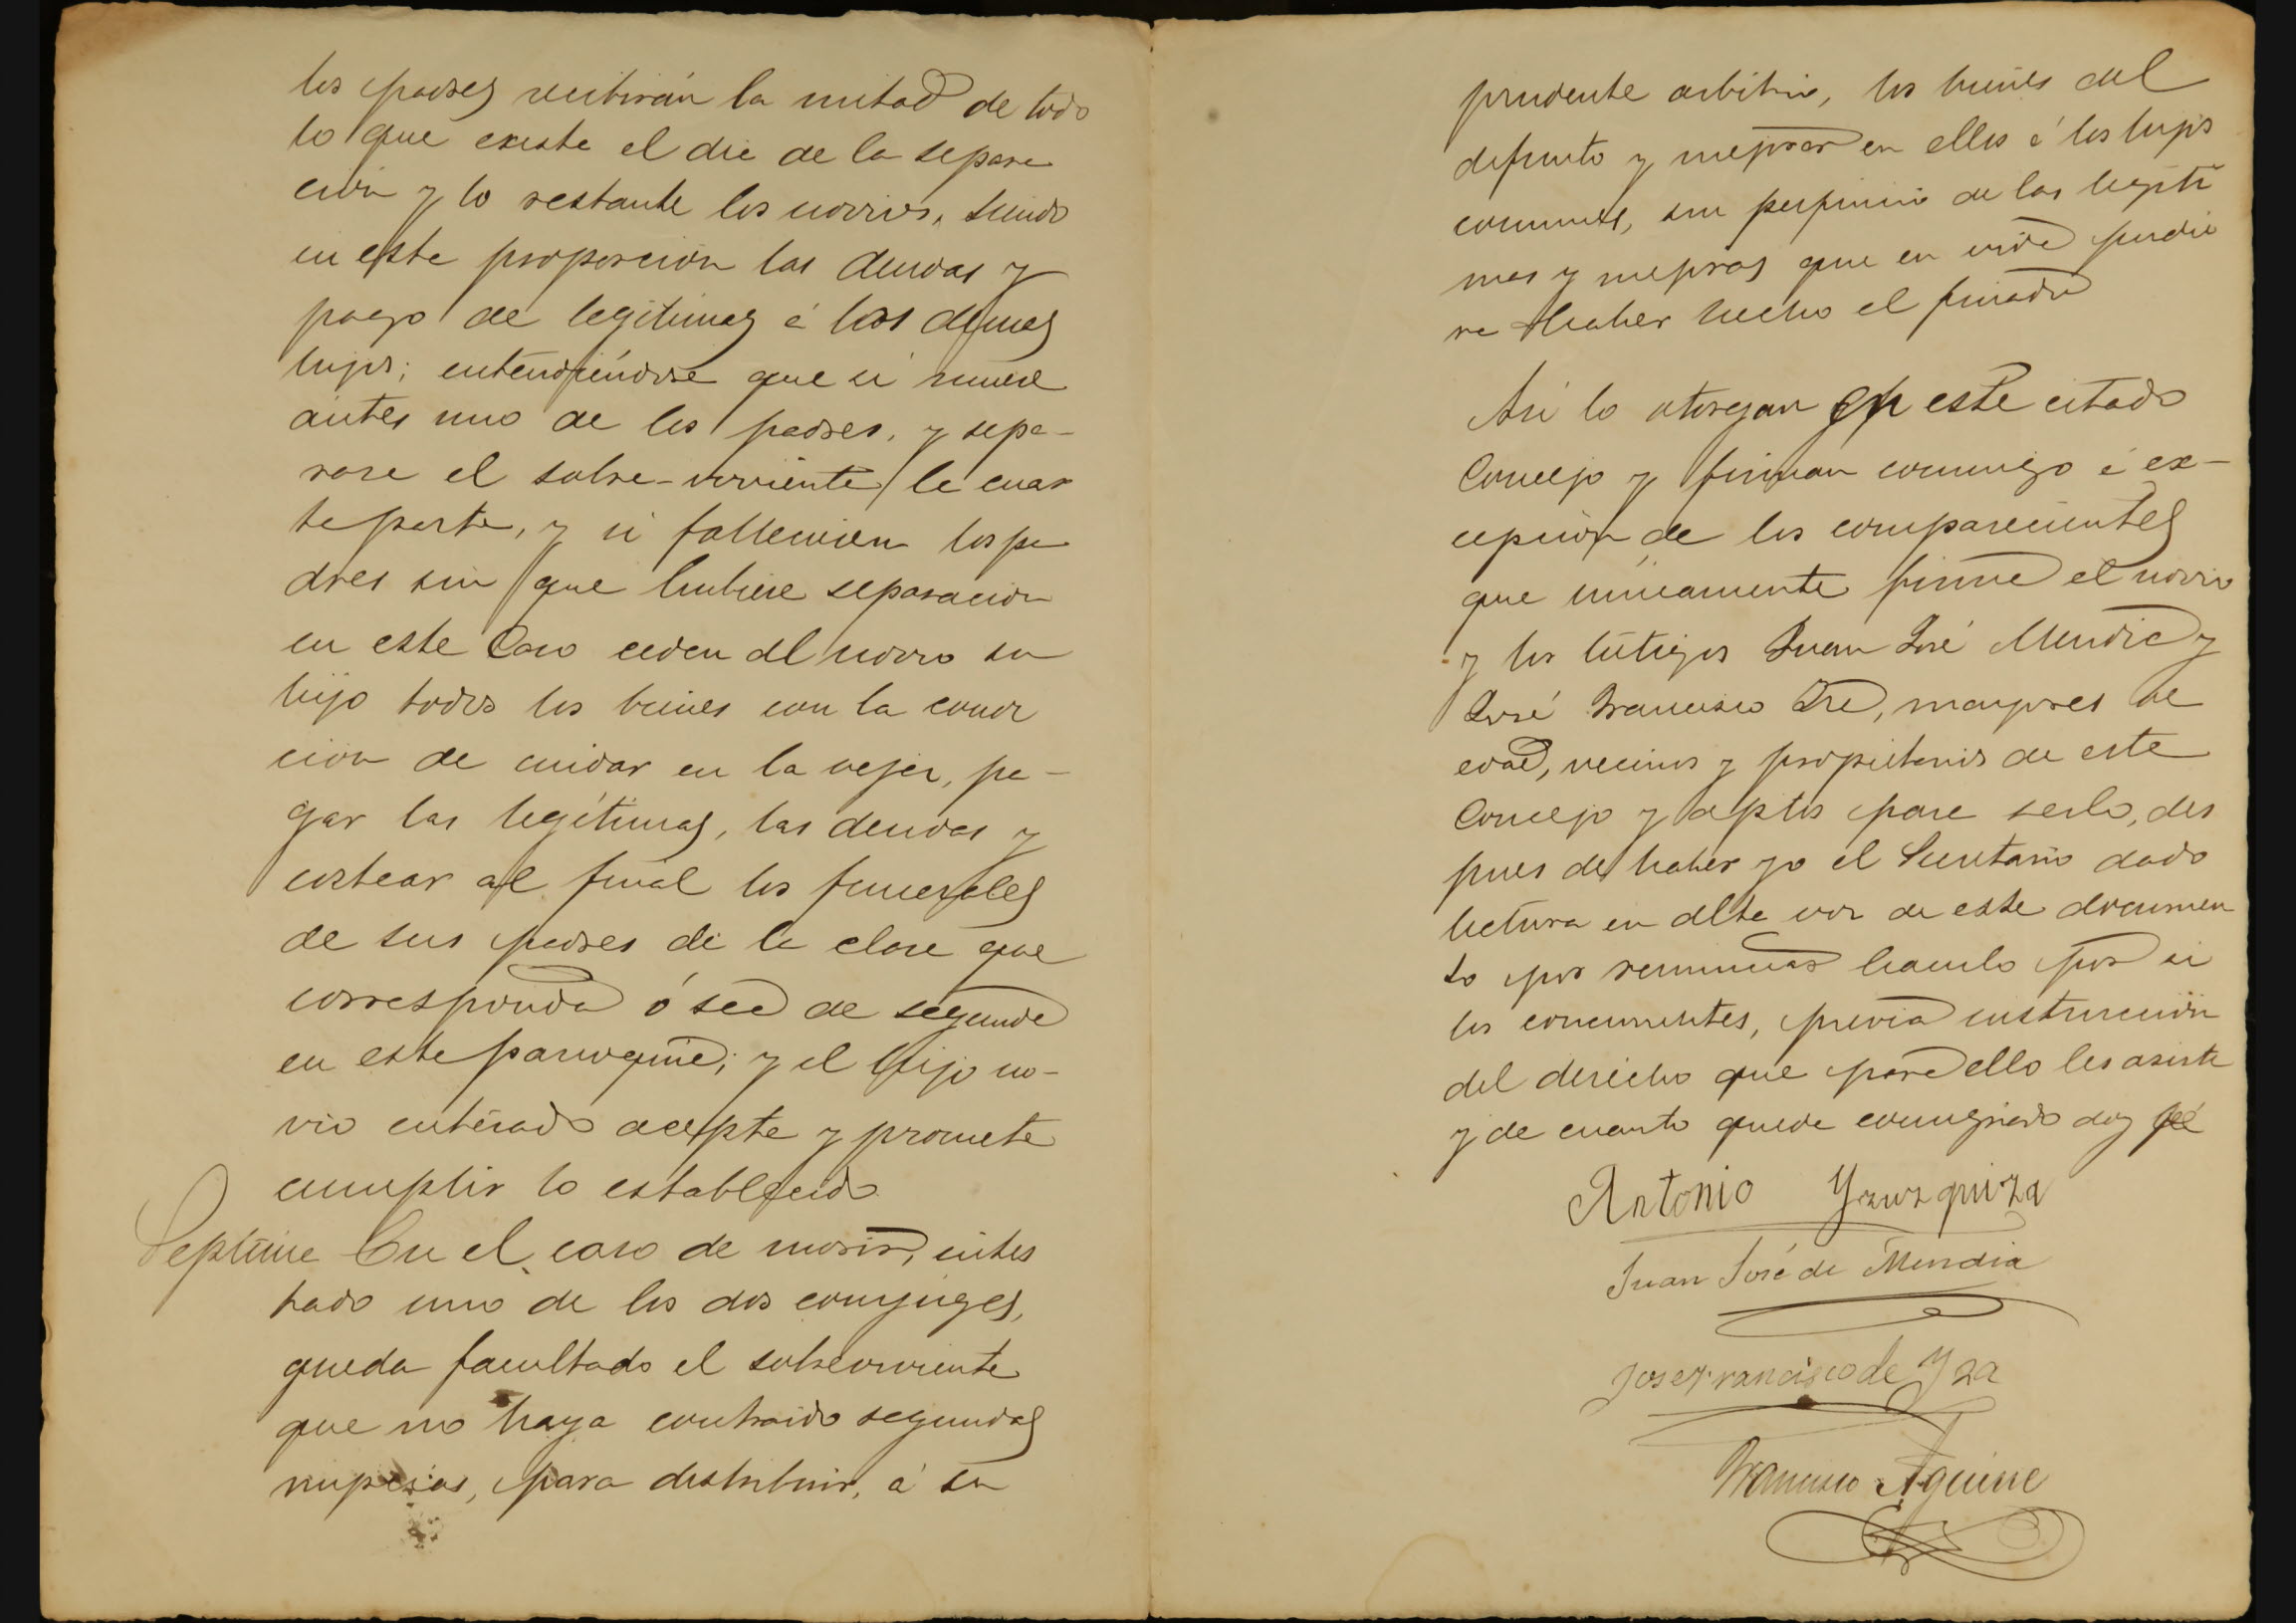 los padres recibirán la mitad de todo
lo que exista el dia de la separa
cion y lo restante los novios, siendo
en esta proporcion las deudas y
pago de legitimas á los demas
hijos; entendiéndose que si muere
antes uno de los padres, y sepa-
rase el sobre-viviente la cuar
ta parte, y si fallecieren los pa
dres sin que hubiese separacion
en este Caso ceden al novio su
hijo todos los bienes con la condi
cion de cuidar en la vejez, pa-
gar las legítimas, las deudas y
costear al final los funerales
de sus padres de la clase que
corresponda ó sea de segunda
en esta parroquia; y el hijo no-
vio enterado acepta y promete
cumplir lo establecido
Septima En el caso de morir, intes
tado uno de los dos conyuges,
queda facultado el sobreviviente
que no haya contraido segundas
nupcias, para distribuir, á su
prudente arbitrio, los bienes del
difunto y mejorar en ellos á los hijos
comunes, sin perjuicio de las legiti
mas y mejoras que en vida pudie
re haber hecho el finado
Asi lo otorgan en este citado
Concejo y firman conmigo á ex-
cepcion de los comparecientes
que únicamente firma el novio
y los testigos Juan José Mendia y
José Francisco Iza, mayores de
edad, vecinos y propietarios de este
Concejo y aptos para serlo, des
pues de haber yo el Secretario dado
lectura en alta voz de este documen
to por renunciar hacerlo por si
los concurrentes, previa instruccion
del derecho que para ello les asiste
y de cuanto queda consignado doy fé
Antonio Yzuzquiza
Juan José de Mendia
Jose Francisco de Yza
Francisco Aguirre